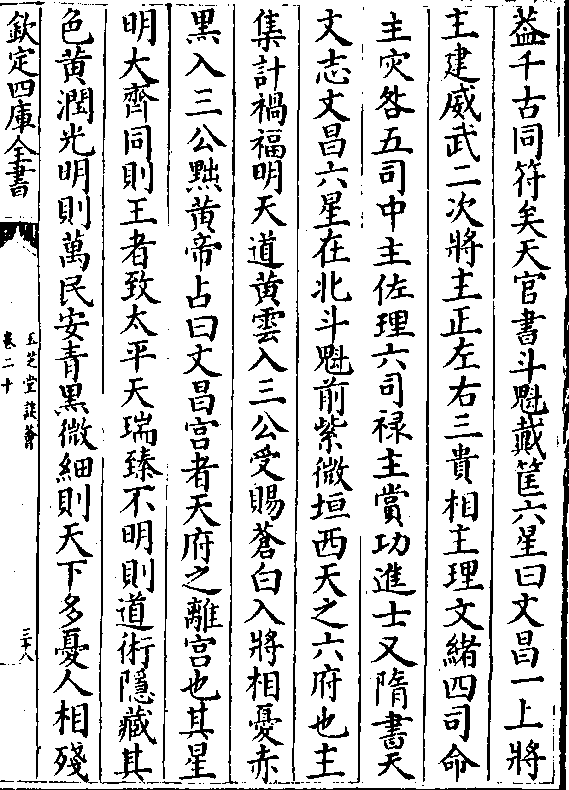 益千古同符矣天官書斗魁戴筐六星曰文昌一上將
主建威武二次將主正左右三貴相主理文緒四司命
主灾咎五司中主佐理六司禄主賞功進士又隋書天
文志文昌六星在北斗魁前紫微垣西天之六府也主
集計禍福明天道黄雲入三公受賜蒼白入將相憂赤
黒入三公黜黄帝占曰文昌宫者天府之離宫也其星
明大齊同則王者致太平天瑞臻不明則道術隱藏其
色黄潤光明則萬民安青黒微細則天下多憂人相殘
欽定四庫全書
玉芝堂談薈
卷二十
三十八